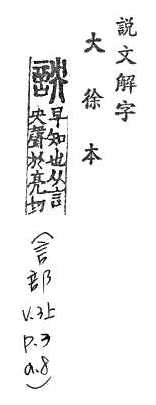 説文解字
大徐本
詇
早知也从言
央聲於亮切
(言部
v.3上
p.3
a.8)